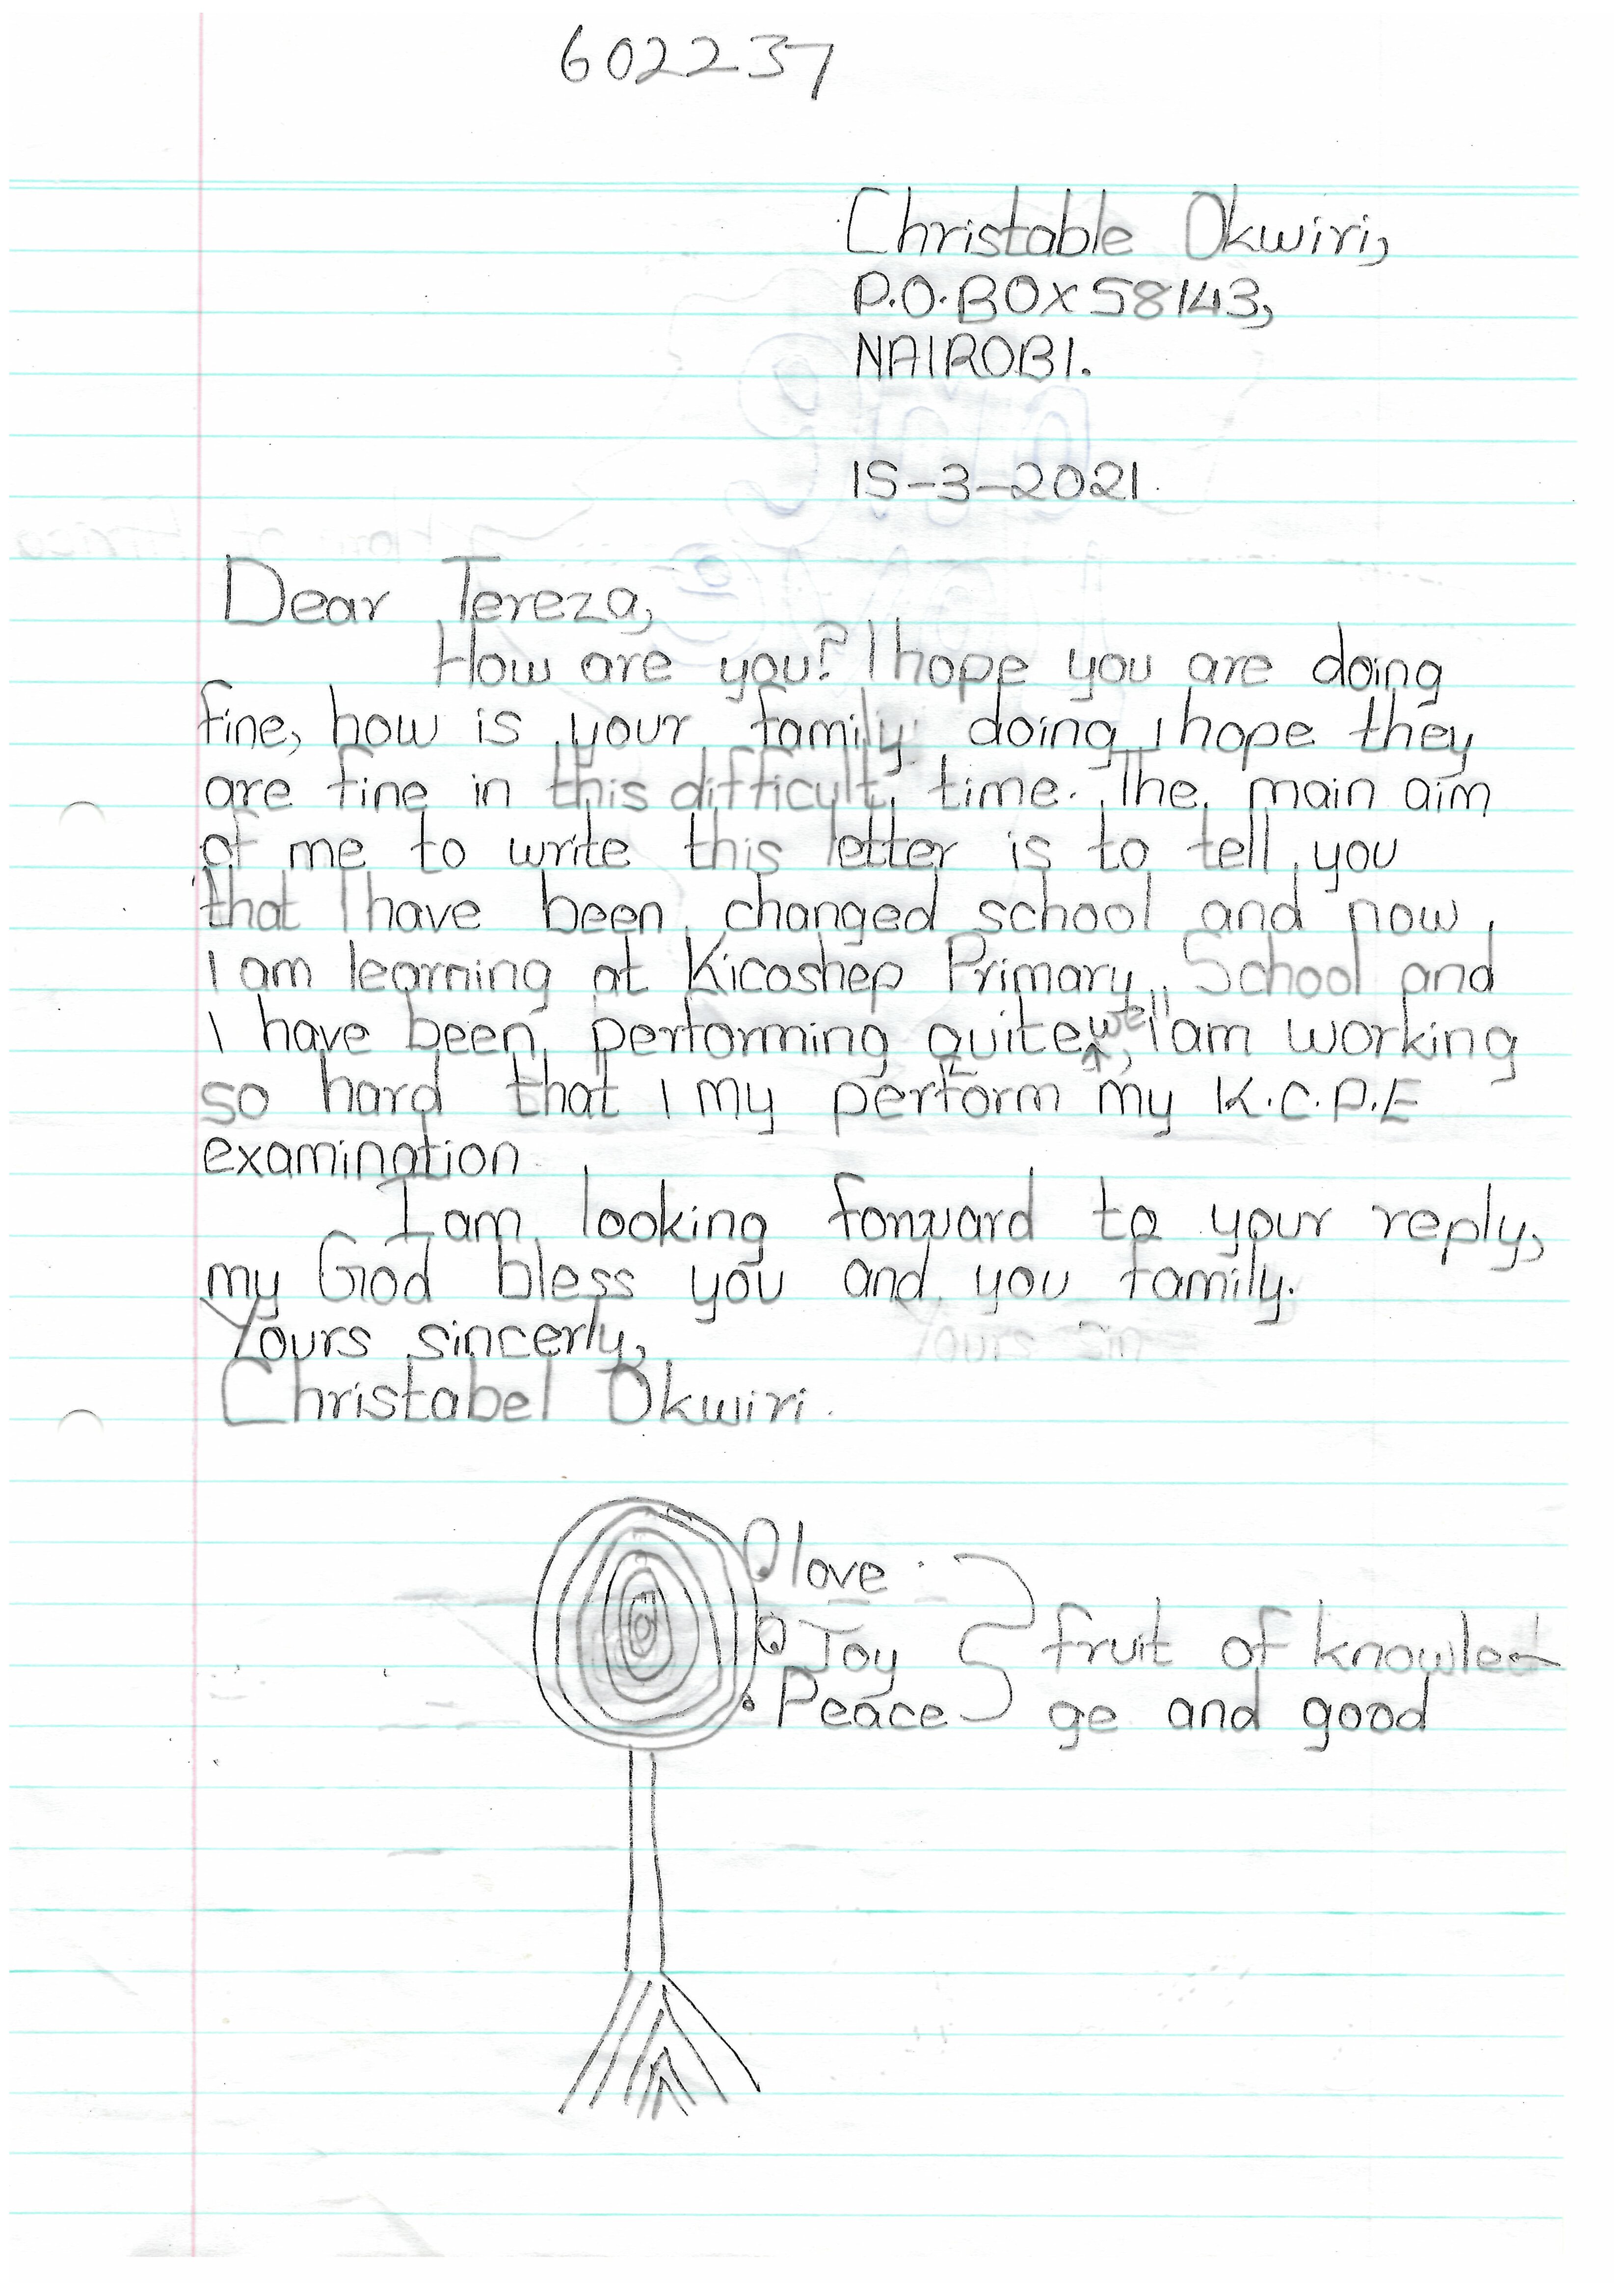 602237
Christable Okwiri,
P.O.BOX 58143,
NAIROBI.
15-3-2021.
Dear Tereza,
How are you? I hope you are doing
fine, how is your family doing i hope they
are fine in this difficult time. The main aim
of me to write this letter is to tell you
that I have been changed school and now
I am learning at Kicoshep Primary School and
I have been performing quite well, I am working
so hard that I my perform my K.C.P.E
examination
I am looking forward to your reply,
my God bless you and you family.
Yours sincerly,
Christabel Okwiri.
love
Joy fruit of knowled
Peace ge and good